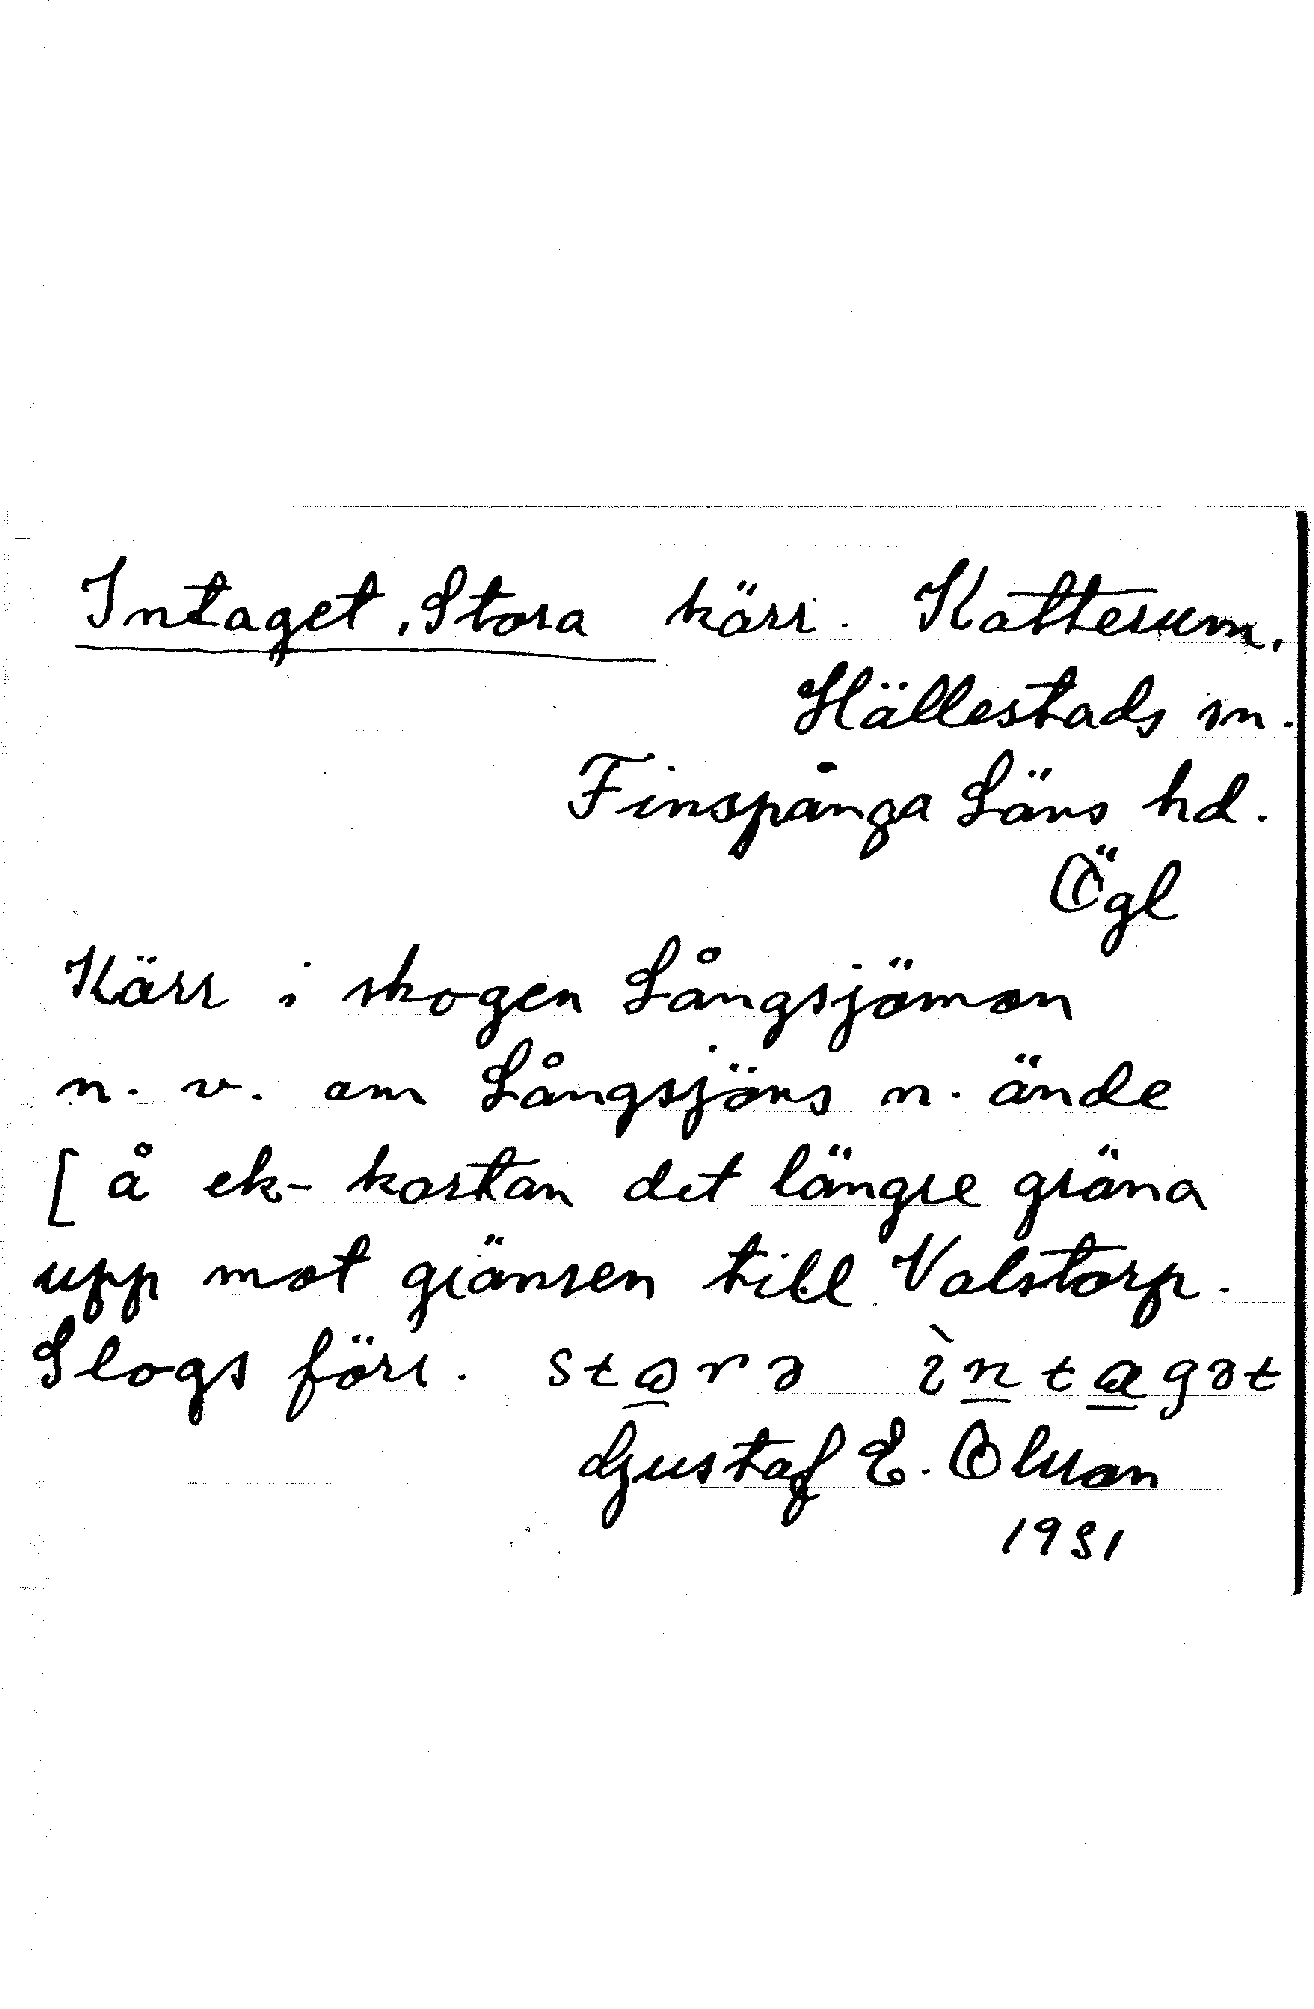 Intaget, Stora kärr. Katterum.
Hällestads sn.
Finspånga Läns hd.
Ögl
Kärr i skogen Långsjömon
n. v. om Långsjöns n. ände
[ å ek-kartan det längre gröna
upp mot gränsen till Valstorp.
Slogs förr. stora ìntagət
Gustaf E. Olsson
1931